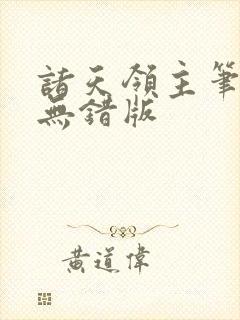 諸天領主筆
無錯版
黃道偉